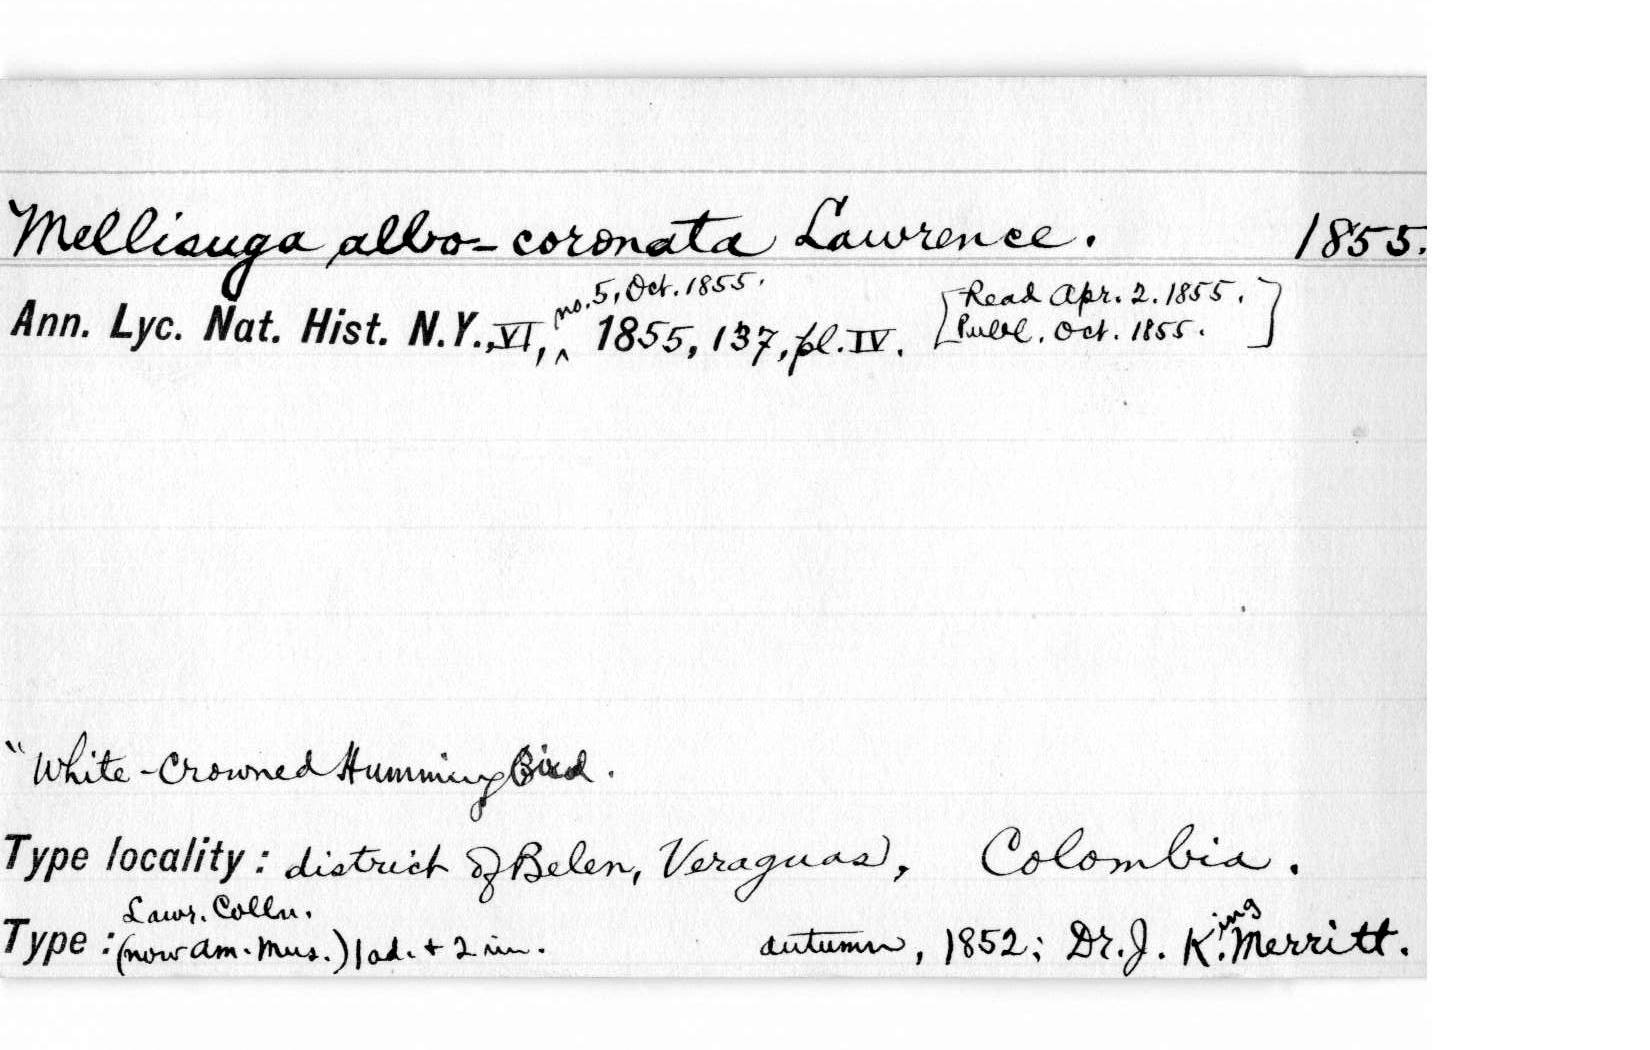 Mellisuga albo-coronata Lawrence. 1855.
no. 5, Oct. 1855.
Ann. Lyc. Nat. Hist. N.Y., VI, ^ 1855, 137, pl. IV. [Read Apr. 2. 1855.
Publ. Oct. 1855.]
"White-Crowned Humming Bird.
Type locality: district of Belen, Veraguas, Colombia.
Lawr. Colln.
Type: (now Am. Mus.) 1 ad. + 2 im. autumn, 1852; Dr. J. King Merritt.